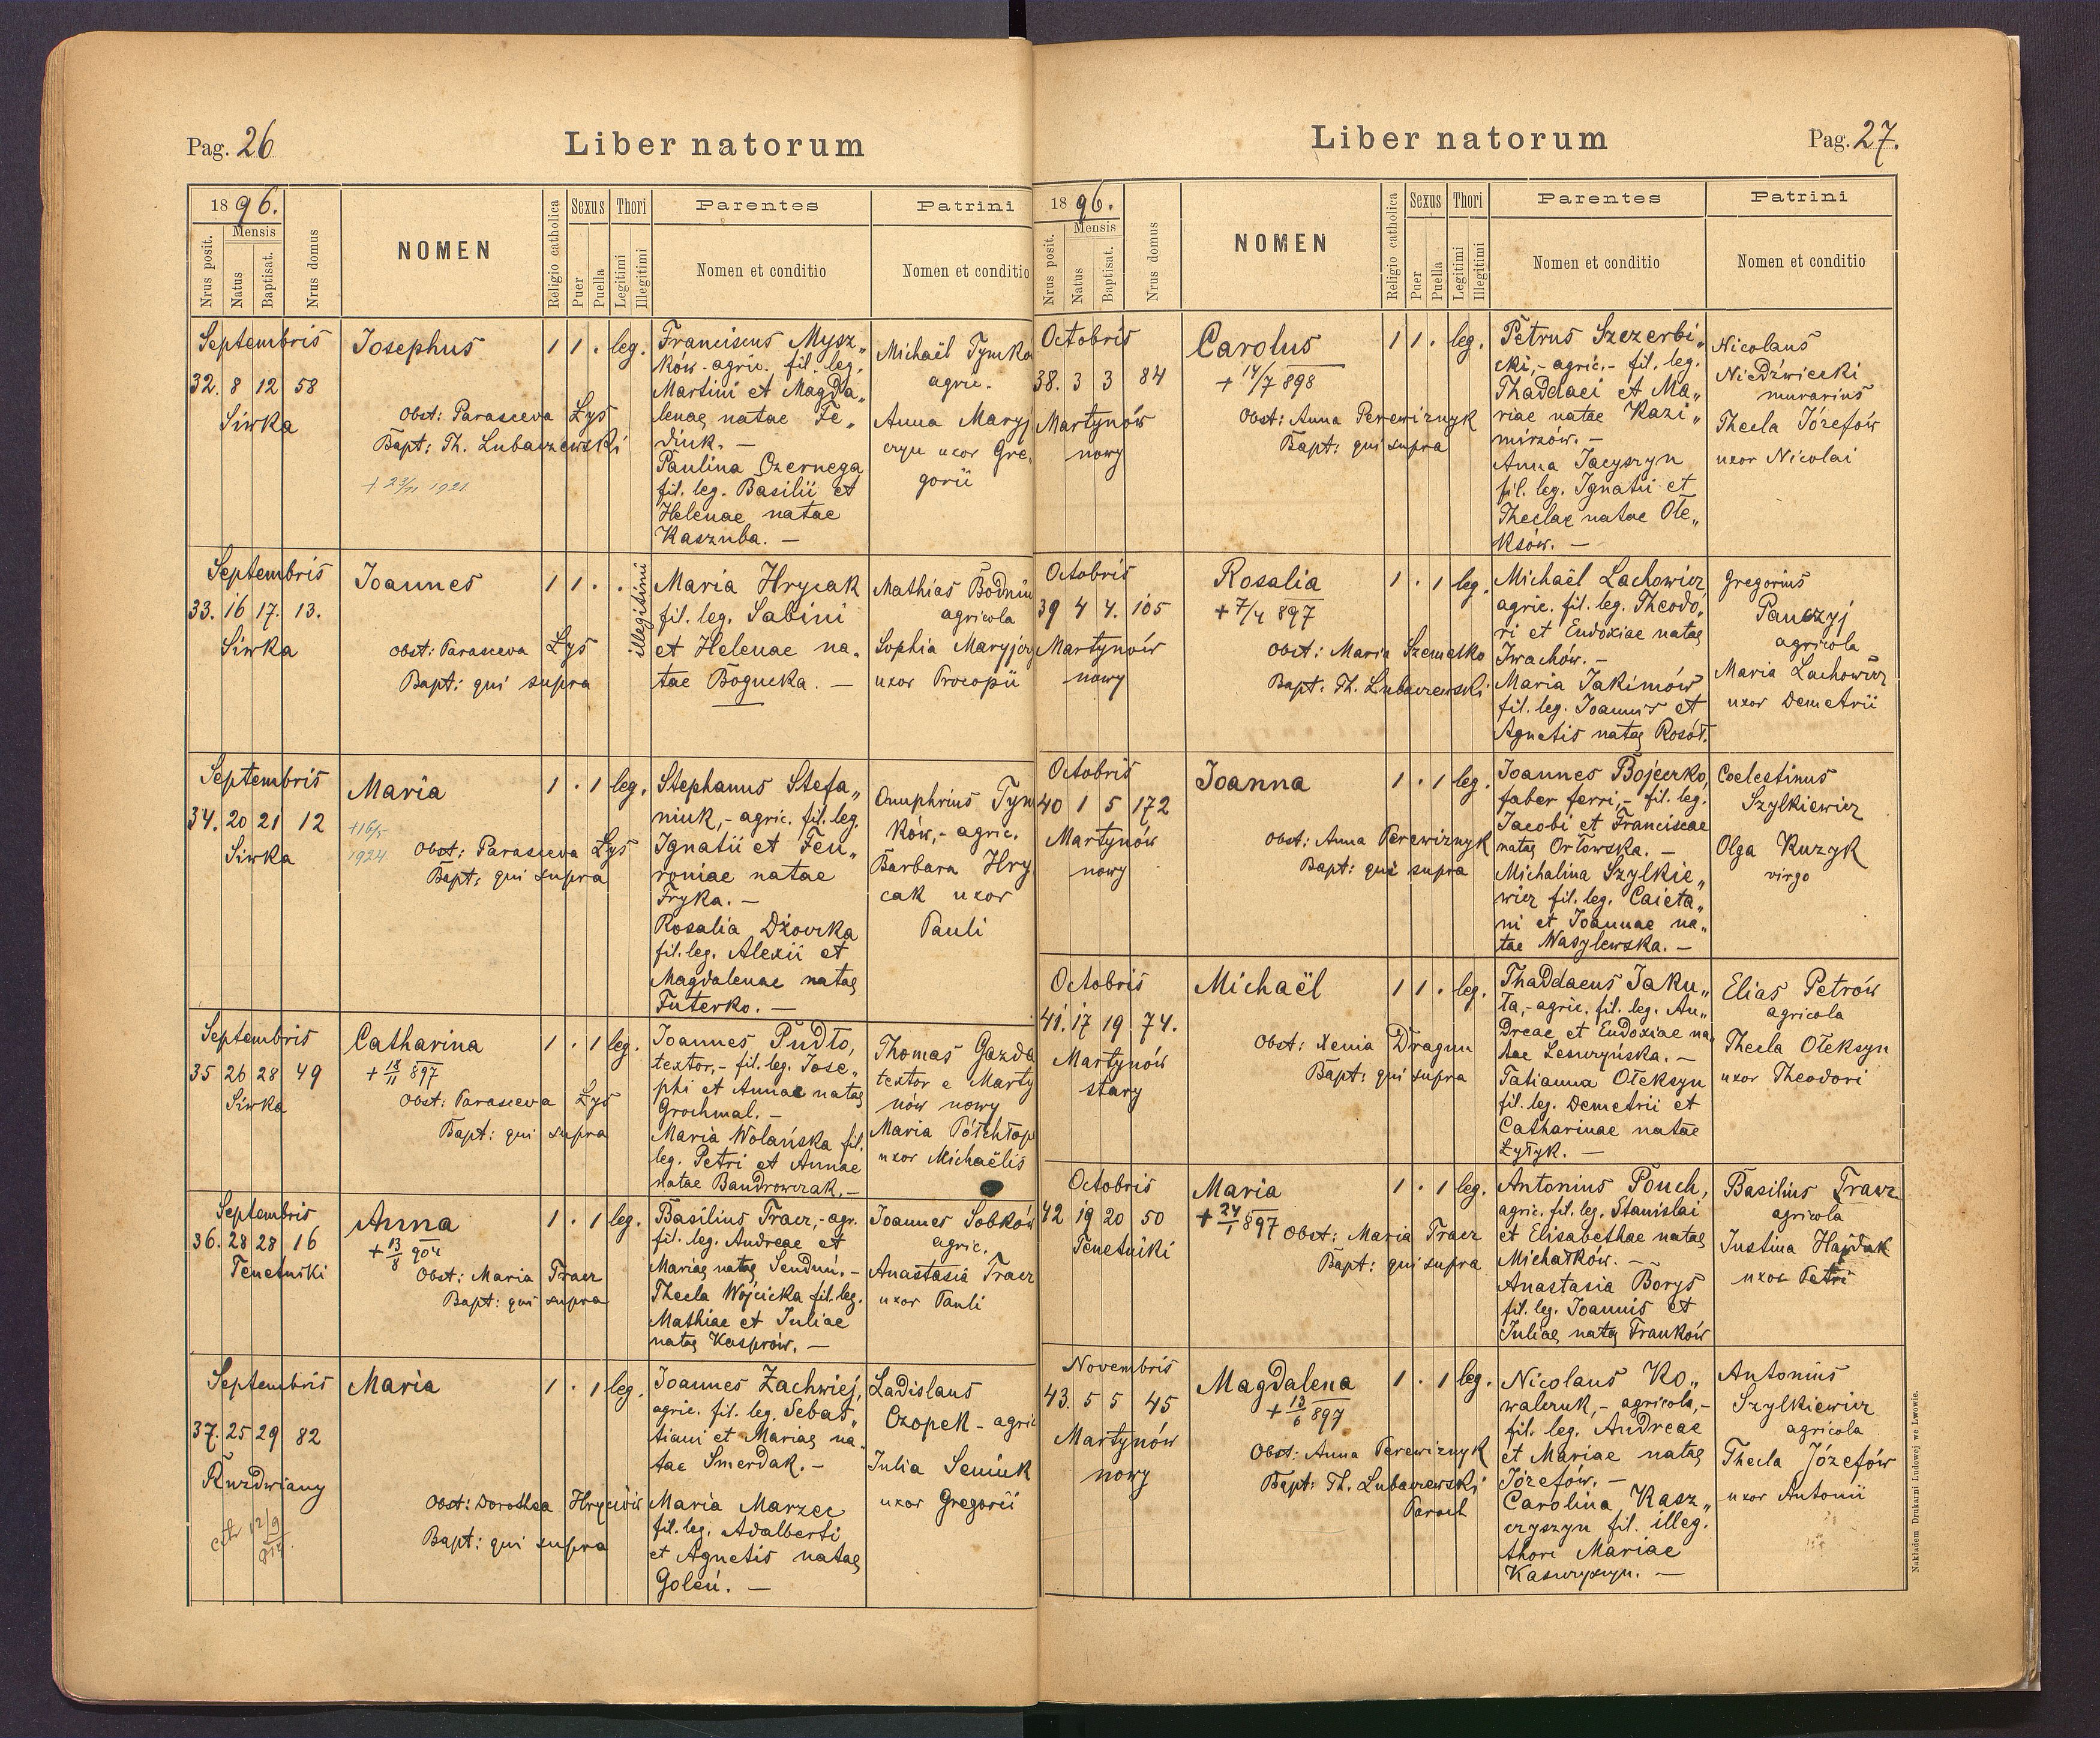 Pag. 26
Liber natorum
1896.
Mensis
Nrus posit.
Natus
Baptisat.
Nrus domus
NOMEN
Religio catholica
Sexus
Puer
Puella
Thori
Legitimi
Illegitimi
Parentes
Nomen et conditio
Patrini
Nomen et conditio
Septembris
32. 8 12 58
Siwka
Josephus
Obst: Parasceva Łyś
Bapt: Th. Lubaczewski
1 1 . leg.
Franciscus Mysz„
ków - agric. fil. leg.
Martini et Magda„
lenae natae Fe„
diuk. —
Paulina Czernega
fil. leg. Basilii et
Helenae natae
Kasznba. —
Michaël Tymkó
agric.
Anna Maryj
czyn uxor Gre.
gorii
Septembris
33. 16 17. 13.
Siwka
Joannes
Obst: Parasceva Łyś
Bapt: qui supra
1 1 . .
illegitimi
Maria Hrycak
fil. leg. Sabini
et Helenae na.
tae Bogucka. —
Mathias Bodniu
agricola
Sophia Maryjczy
uxor Procopii
Septembris
34. 20 21 12
Siwka
Maria
+16/5
1924
Obst: Parasceva Łyś
Bapt: qui supra
1 . 1 leg.
Stephanus Stefa„
niuk, - agric. fil. leg.
Ignatii et Feu„
roniae natae
Fryka. —
Rosalia Dżovrka
fil. leg. Alexii et
Magdalenae natae
Futerko. —
Onuphrius Tym
ków, - agric.
Barbara Hry
cak uxor
Pauli
Septembris
35 26 28 49
Siwka
Catharina
+ 18/11 897
Obst: Parasceva Łyś
Bapt: qui supra
1 . 1 leg.
Joannes Pudło,
textor, - fil. leg. Jose„
phi et Annae natae
Grochmal. —
Maria Wolańska fil.
leg. Petri et Annae
natae Bandrowczak. —
Thomas Gazda
textor e Marty
nów nowy
Maria Półchłop
uxor Michaëlis
Septembris
36. 28 28 16
Tenetniki
Anna
+ 13/8 904
Obst: Maria Tracz
Bapt: qui supra
1 . 1 leg.
Basilius Tracz, - agr.
fil. leg. Andreae et
Mariae natae Senduń. -
Thecla Wójcicka fil. leg.
Mathiae et Juliae
natae Kasprów. —
Joannes Sobków
agric.
Anastasia Tracz
uxor Pauli
Septembris
37. 25 29 82
Kuzdwiany
Maria
Obst: Dorothea Hryciów
Bapt: qui supra
1 . 1 leg.
Joannes Zachwiej,
agric. fil. leg. Sebas„
tiani et Mariae na.
tae Smerdak. -
Maria Marzec
fil. leg. Adalberti
et Agnetis natae
Goleń. —
Ladislaus
Czopek - agric
Julia Seniuk
uxor Gregorii
Liber natorum
Pag. 27.
1896.
Mensis
Nrus posit.
Natus
Baptisat.
Nrus domus
NOMEN
Religio catholica
Sexus
Puer
Puella
Thori
Legitimi
Illegitimi
Parentes
Nomen et conditio
Patrini
Nomen et conditio
Octobris
38. 3 3 84
Martynów
nowy
Carolus
+ 14/7 898
Obst: Anna Perewiznyk
Bapt: qui supra
1 1 . leg.
Petrus Szczerbi„
cki, - agric. - fil. leg.
Thaddaei et Ma„
riae natae Kazi„
mirzów. —
Anna Jacyszyn
fil. leg. Ignatii et
Theclae natae Ołe„
ksów. —
Nicolaus
Niedźwiecki
murarius
Thecla Józefów
uxor Nicolai
Octobris
39 4 4. 105
Martynów
nowy
Rosalia
+ 7/4 897
Obst: Maria Szemełko
Bapt: Th. Lubaczewski
1 . 1 leg.
Michaël Lachowicz
agric. fil. leg. Theodo„
ri et Eudoxiae natae
Iwachów. —
Maria Jakimów
fil. leg. Joannis et
Agnetis natae Rosół.
Gregorius
Panczyj
agricola
Maria Lachowicz
uxor Demetrii
Octobris
40 1 5 172
Martynów
nowy
Joanna
Obst: Anna Perewiznyk
Bapt: qui supra
1 . 1 leg.
Joannes Bojeczko,
faber ferri, - fil. leg.
Jacobi et Franciscae
natae Orłowska. —
Michalina Szylkie„
wicz fil. leg. Caieta„
ni et Joannae na„
tae Wasylewska. —
Coelestinus
Szylkiewicz
Olga Kuzyk
virgo
Octobris
41. 17 19 74.
Martynów
stary
Michaël
Obst: Xenia Dragun
Bapt: qui supra
1 1 . leg.
Thaddaeus Jaku„
ta, - agric. fil. leg. An„
dreae et Eudoxiae na„
tae Leszczyńska. —
Tatianna Ołeksyn
fil. leg. Demetrii et
Catharinae natae
Łytyk. —
Elias Petrów
agricola
Thecla Ołeksyn
uxor Theodori
Octobris
42 19 20 50
Tenetniki
Maria
+ 24/1 897
Obst: Maria Tracz
Bapt: qui supra
1 . 1 leg.
Antonius Pouch,
agric. fil. leg. Stanislai
et Elisabethae natae
Michałków. —
Anastasia Borys
fil. leg. Joannis et
Juliae natae Franków
Basilius Tracz
agricola
Justina Hajdak
uxor Petri
Novembris
43. 5 5 45
Martynów
nowy
Magdalena
+ 13/6 897
Obst: Anna Perewiznyk
Bapt: Th. Lubaczewski
Paroch
1 . 1 leg.
Nicolaus Ko„
walczuk, - agricola, -
fil. leg. Andreae
et Mariae natae
Józefów. —
Carolina Kasz„
czyszyn fil. illeg.
thori Mariae
Kaszczyszyn. —
Antonius
Szylkiewicz
agricola
Thecla Józefów
uxor Antonii
Nakładem Drukarni Ludowej we Lwowie.